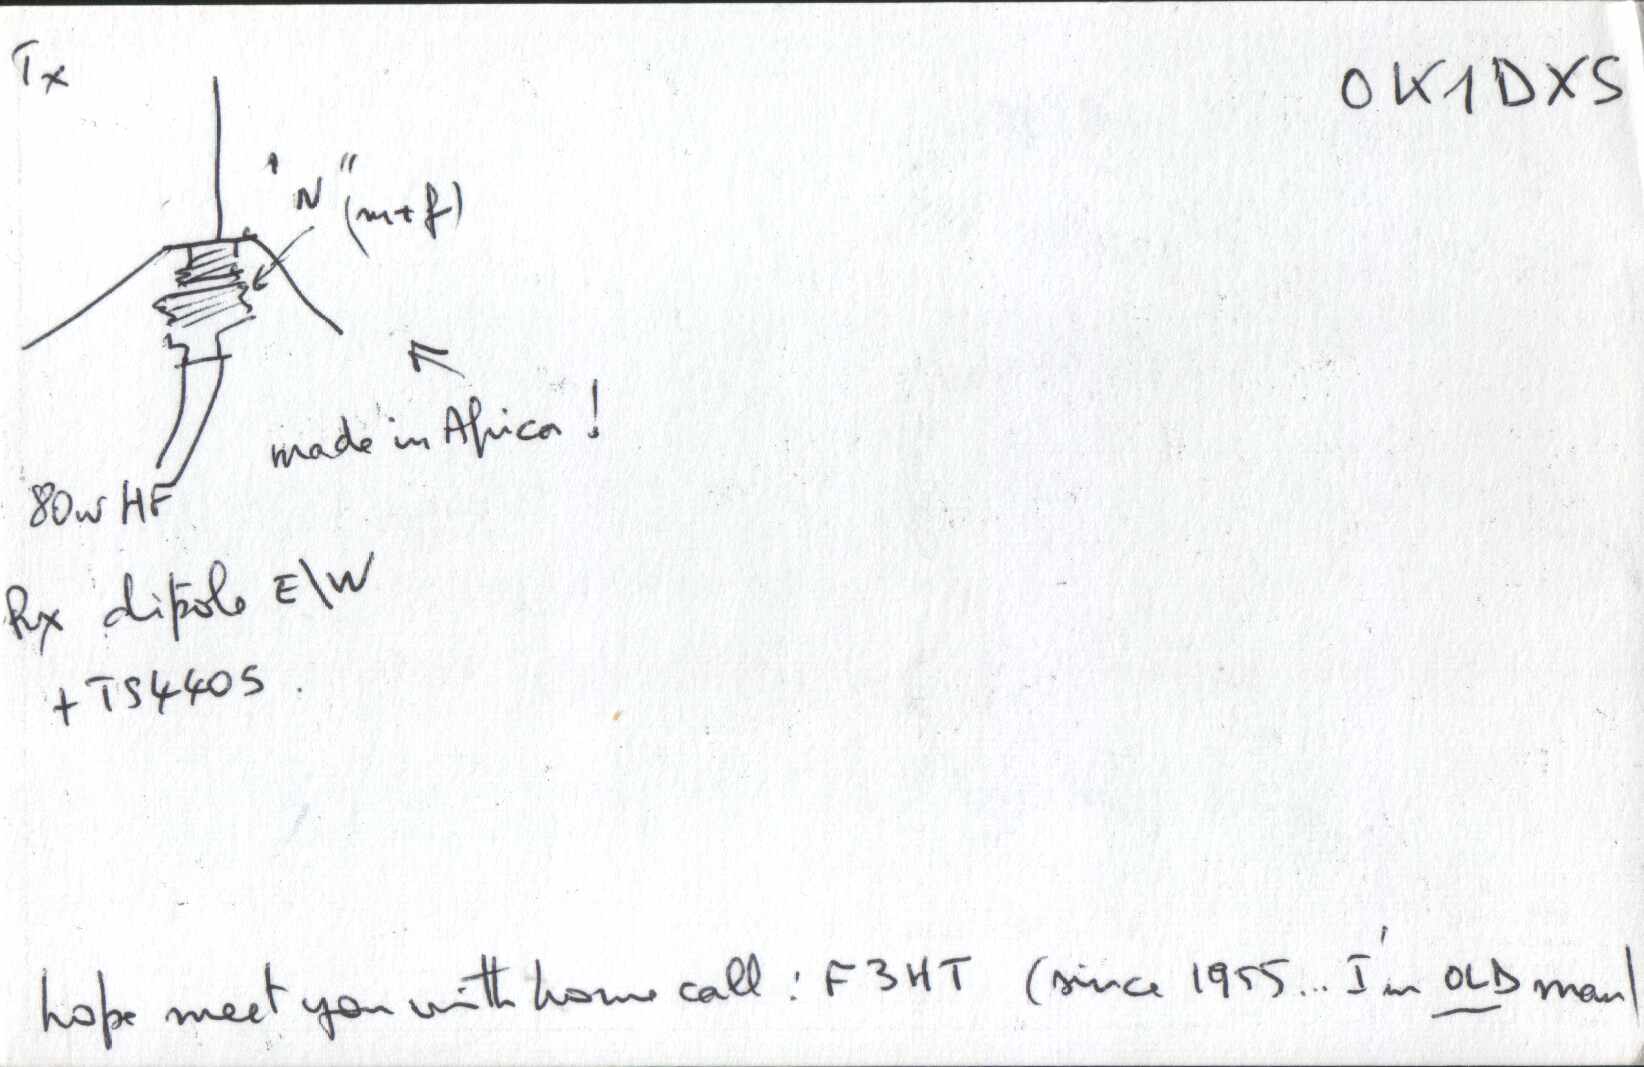 Tx
OK1DXS
"N" (m+f)
made in Africa !
80w HF
Rx dipole E\W
+ TS440S .
hope meet you with home call : F3HT (since 1955... I'm OLD man)